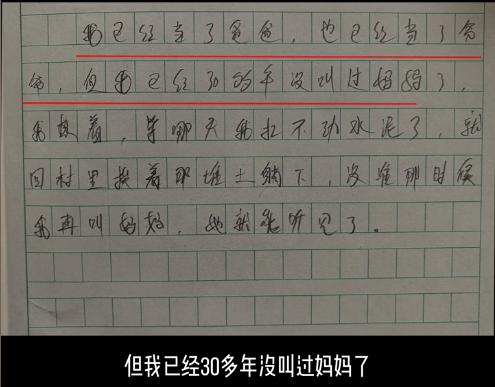 我已经当了爸爸，也已经当了爷
爷，但我已经30多年没叫过妈妈了，
我想着，等哪天我扛不动水泥了，就
回村里挨着那堆土躺下，没准那时候
我再叫妈妈，她就能听见了。
但我已经30多年没叫过妈妈了